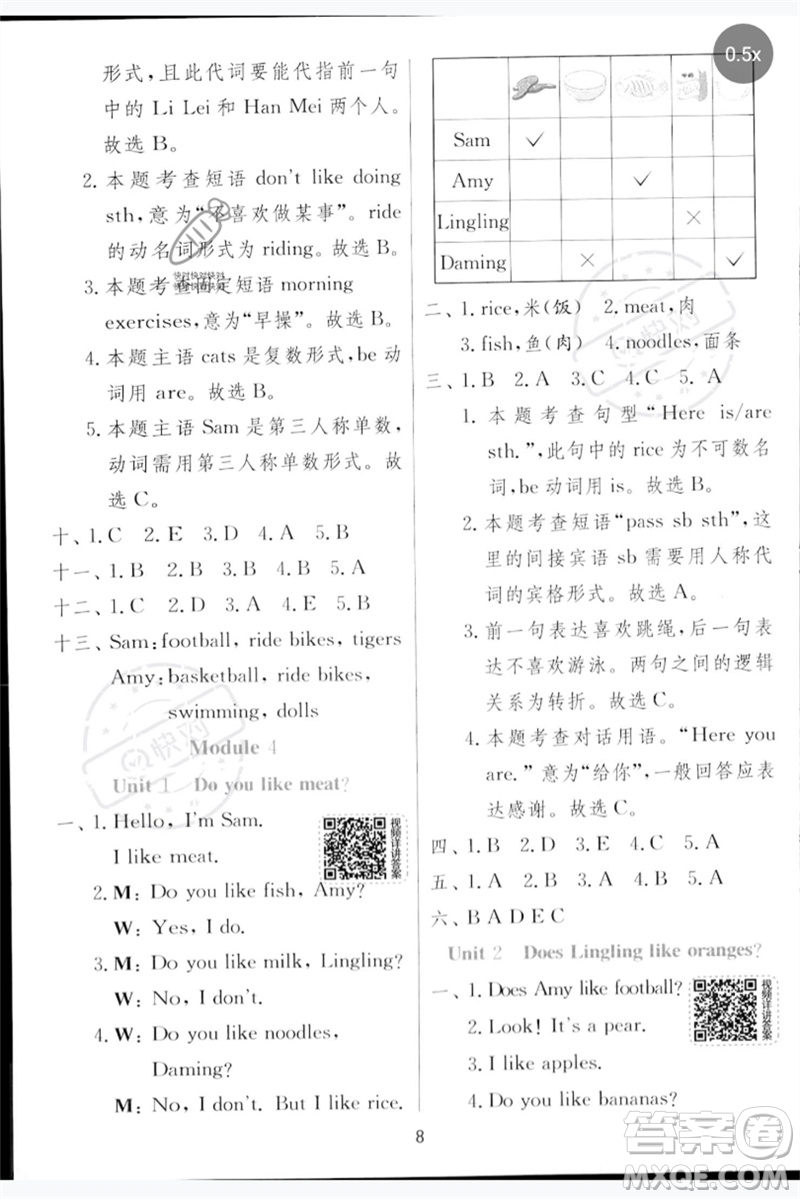 形式，且此代词要能代指前一句
中的 Li Lei 和 Han Mei 两个人。
故选 B。
2. 本题考查短语 don't like doing
sth，意为“不喜欢做某事”。ride
的动名词形式为 riding。故选 B。
3. 本题考查固定短语 morning
exercises，意为“早操”。故选 B。
4. 本题主语 cats 是复数形式，be 动
词用 are。故选 B。
5. 本题主语 Sam 是第三人称单数，
动词需用第三人称单数形式。故
选 C。
十、1.C 2.E 3.D 4.A 5.B
十一、1.B 2.A 3.C 4.B 5.B
十二、1.C 2.D 3.A 4.E 5.B
十三、Sam: football, ride bikes, tigers
Amy: basketball, ride bikes,
swimming, dolls
Module 4
Unit 1 Do you like meat?
一、1. Hello, I'm Sam.
I like meat.
视频详讲答案
2. M: Do you like fish, Amy?
W: Yes, I do.
3. M: Do you like milk, Lingling?
W: No, I don't.
4. W: Do you like noodles,
Daming?
M: No, I don't. But I like rice.
0.5x
Sam ✓
Amy ✓
Lingling ×
Daming × ✓
二、1. rice，米（饭） 2. meat，肉
3. fish，鱼（肉） 4. noodles，面条
三、1.B 2.A 3.C 4.C 5.A
1. 本题考查句型“Here is/are
sth.”，此句中的 rice 为不可数名
词，be 动词用 is。故选 B。
2. 本题考查短语“pass sb sth”，这
里的间接宾语 sb 需要用人称代
词的宾格形式。故选 A。
3. 前一句表达喜欢跳绳，后一句表
达不喜欢游泳。两句之间的逻辑
关系为转折。故选 C。
4. 本题考查对话用语。“Here you
are.”意为“给你”，一般回答应表
达感谢。故选 C。
四、1.B 2.B 3.C 4.A 5.A
五、1.B 2.A 3.B 4.B 5.A
六、B A D E C
Unit 2 Does Lingling like oranges?
一、1. Does Amy like football?
2. Look! It's a pear.
3. I like apples.
4. Do you like bananas?
视频详讲答案
8
答案卷
MXQE.COM